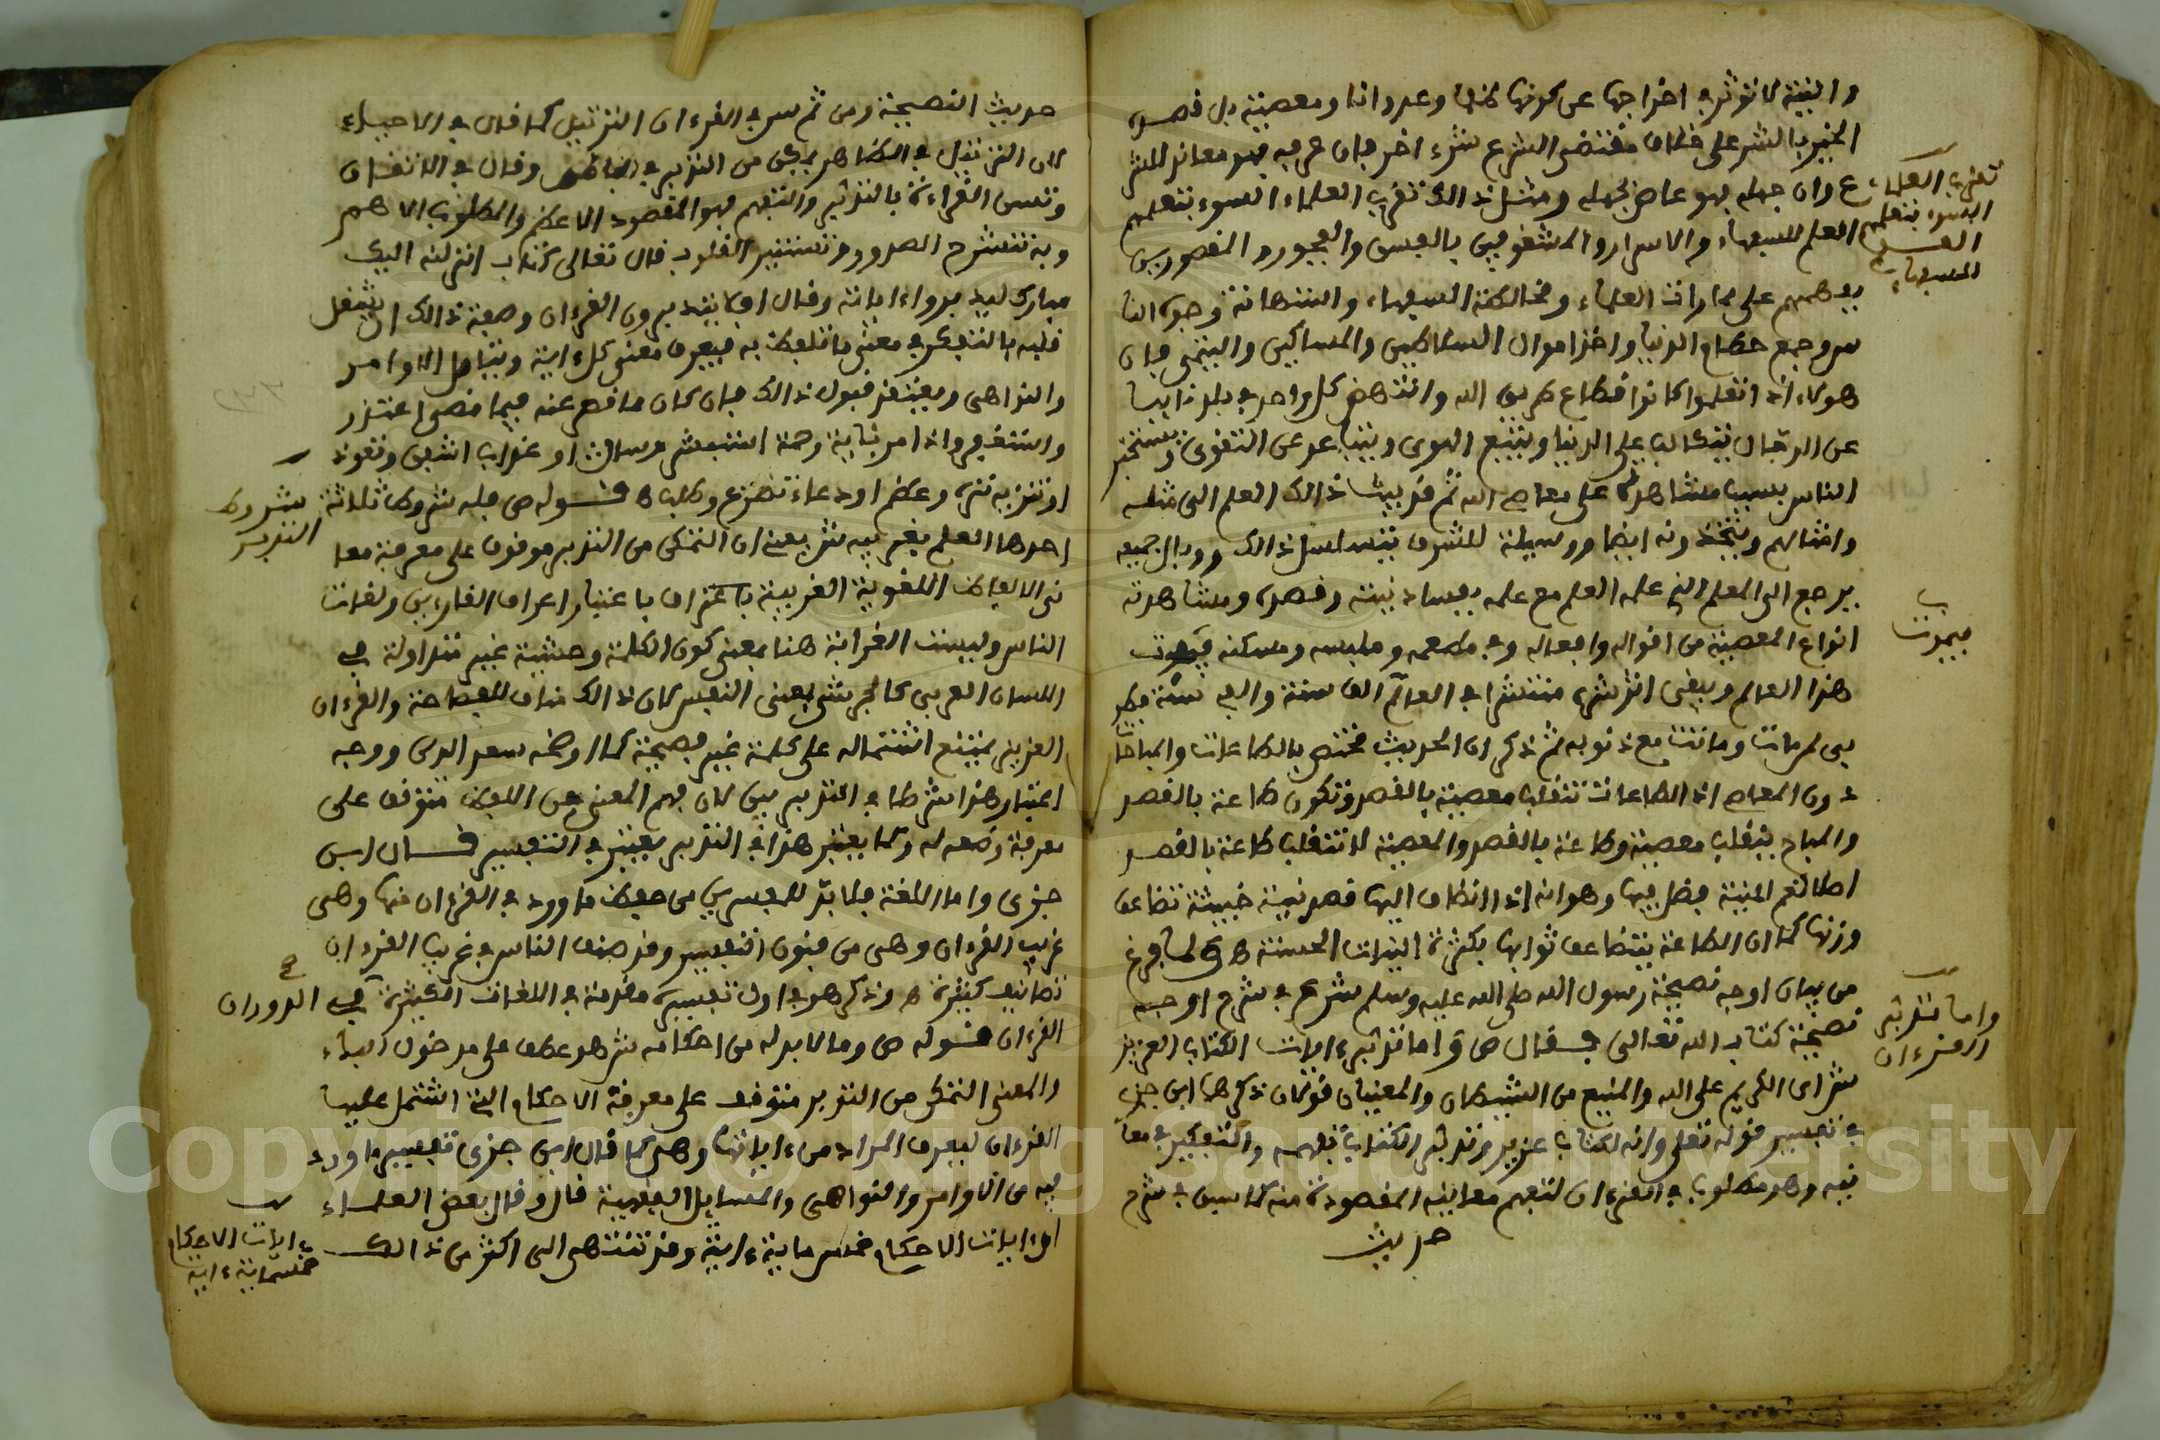 والنية لا تؤثر في اخراجها عن كونها ظلما وعدوانا ومعصية بل قصده
الخير بالشر على خلاف مقتضى الشرع شر اخر فان عرفه فهو معاند للشر
ع وان جهله فهو عاص بجهله ومثل ذالك تقريب العلماء السوء بتعليم
العلم للسفهاء والاشرار المشغوفين بالفسق والفجور المقصورين
هممهم على مماراة العلماء و السفهاء واستمالة وجوه النا
س وجمع حطام الدنيا واخذ اموال السلاطين والمساكين واليتمى فان
هولاء اذا تعلموا كانوا قطاع طريق الله وانتهض كل واحد في بلده نايبا
عن الدجال يتكالب على الدنيا ويتبع الهوى ويتباعد عن التقوى ويستجر
الناس بسبب مشاهدته على معاصي الله ثم قد ينشر ذالك العلم الى مثله
وامثالهم ويتخذونه ايضا وسيلة للشر ويتسلسل ذالك ووبال جميعه
يرجع الى المعلم الذي علمه العلم مع علمه بفساد نيته وقصده ومشاهدته
انواع المعصية من اقواله وافعاله وفي مطعمه وملبسه ومسكنه فيموت
هذا العالم ويبقى اثر شره منتشرا في العالم الف سنة والفي سنة فطو
بى لمن مات وماتت معه ذنوبه ثم ذكر ان الحديث مختص بالطاعات والمباحات
دون المعاصي اذ الطاعات تنقلب معصية بالقصد وتكون طاعة بالقصد
والمباح ينقلب معصية وطاعة بالقصد والمعصية لا تنقلب طاعة بالقصد
اصلا نعم للنية دخل فيها وهو انه اذا انضاف اليها قصد نية خبيثة تضاعف
وزرها كما ان الطاعة يتضاعف ثوابها بكثرة النيات الحسنة ه ولما فرغ
من بيان اوجه نصيحة رسول الله صلى الله عليه وسلم شرع في شرح اوجه
نصيحة كتاب الله تعالى فقال ص واما تدبر ءايات الكتاب العزيز
ش اى الكريم على الله والمنيع من الشيطان والمعنيان قولان ذكرهما ابن جزي
في تفسير قوله تعالى وانه لكتاب عزيز وتدبر الكتاب تفهمه والتفكير في معا
نيه وهو مطلوب في القرءان لتفهم معانيه المقصودة منه كما سبق في شرح
حديث
تقريب العلماء
السوء بتعليم
العلم
للسفهاء
فيموت
واما تدبر
القرءان
حديث النصيحة ومن ثم سن في القرءان الترتيل كما قال في الاحياء
لان الترتيل في الظاهر يمكن من التدبر في الباطن وقال في الاتقان
وتسن القراءة بالتدبر والتفهم فهو المقصود الاعظم والمطلوب الاهم
وبه تنشرح الصدور وتستنير القلوب قال تعالى كتاب انزلنه اليك
مبارك ليدبروا ءاياته وقال افلا يتدبرون القرءان وصفة ذالك ان يشغل
قلبه بالتفكر في معنى ما تلفظ به فيعرف معنى كل ءاية ويتامل الاوامر
والنواهى ويعتقد قبول ذالك فان كان ما قصر عنه فيما مضى اعتذر
واستغفر واذا مر بئاية رحمة استبشر وسال او عذاب اشفق وتعوذ
او تنزيه نزه وعظم او دعاء تضرع وطلب ه قوله ص فله شروط ثلاثة
احدها العلم بغريبه ش يعني ان التمكن من التدبر موقوف على معرفة معا
ني الالفاظ اللغوية الغريبة باعتبار اعراف القارءين ولغات
الناس وليست الغرابة هنا بمعنى كون الكلمة وحشية غير متداولة في
اللسان العربي كالجرشى بمعنى النفس لان ذالك مناف للفصاحة والقرءان
العزيز يمتنع اشتماله على كلمة غير فصيحة كما اوضحه سعد الدين ووجه
اعتبار هذا شرطا في التدبر بين لان فهم المعنى من اللفظ متوقف على
معرفة وضعه له وكما يعتبر هذا في التدبر يعتبر في التفسير قال ابن
جزى واما اللغة فلا بد للمفسر من حفظ ما ورد في القرءان منها وهى
غريب القرءان وهى من فنون التفسير وقد صنف الناس في غريب القرءان
تصانيف كثيرة ه وذكر هو في اول تفسيره مقدمة في اللغات الكثيرة في الدوران
القرءان قوله ص وما لا بد له من احكامه ش هو عطف على مدخول الباء
والمعنى التمكن من التدبر متوقف على معرفة الاحكام التي اشتمل عليها
القرءان ليعرف المراد من ءاياتها وهى كما قال ابن جزى تفسير ما ورد
فيه من الاوامر والنواهى والمسايل الفقهية قال وقال بعض العلماء
ان ءايات الاحكام خمس ماية ءاية وقد تنتهى الى اكثر من ذالك
شروط
التدبر
ءايات الاحكام
خمسماية ءاية
Copyright © King Saud University